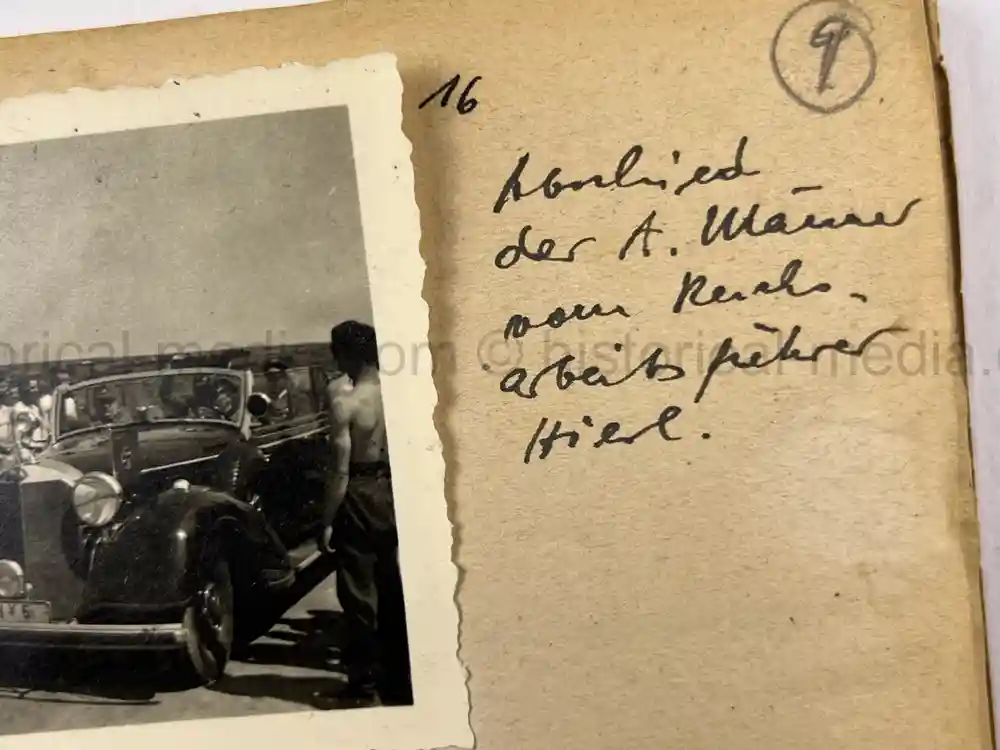 16
9
Abschied
der A. Männer
vom Reichs-
arbeitsführer
Hierl.
historical-media.com © historical-media.com